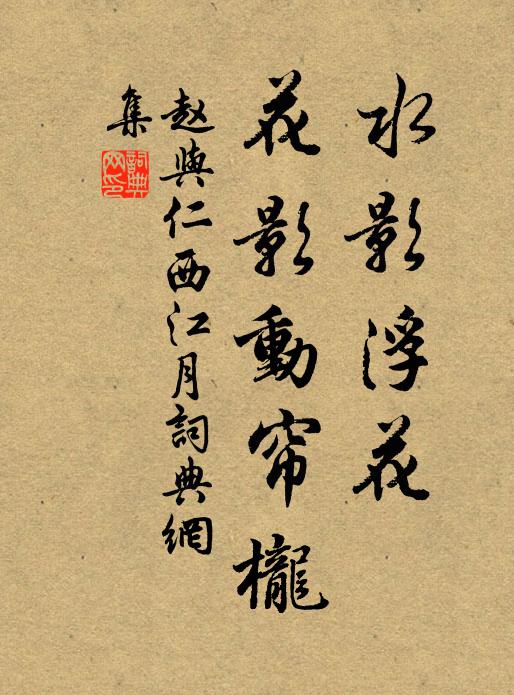 水影浮花
花影動帘櫳
赵與仁西江月詞典網
集
詞典
网印